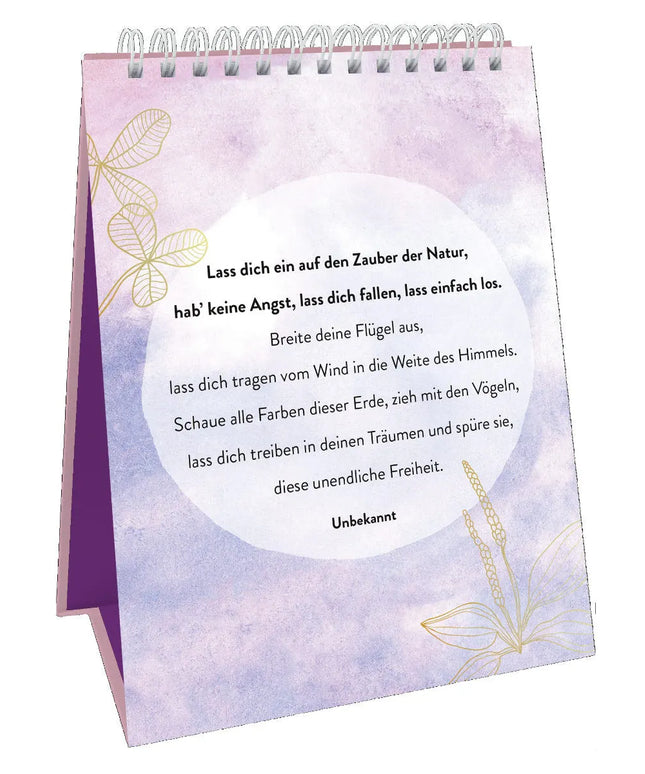 Lass dich ein auf den Zauber der Natur,
hab’ keine Angst, lass dich fallen, lass einfach los.
Breite deine Flügel aus,
lass dich tragen vom Wind in die Weite des Himmels.
Schaue alle Farben dieser Erde, zieh mit den Vögeln,
lass dich treiben in deinen Träumen und spüre sie,
diese unendliche Freiheit.
Unbekannt